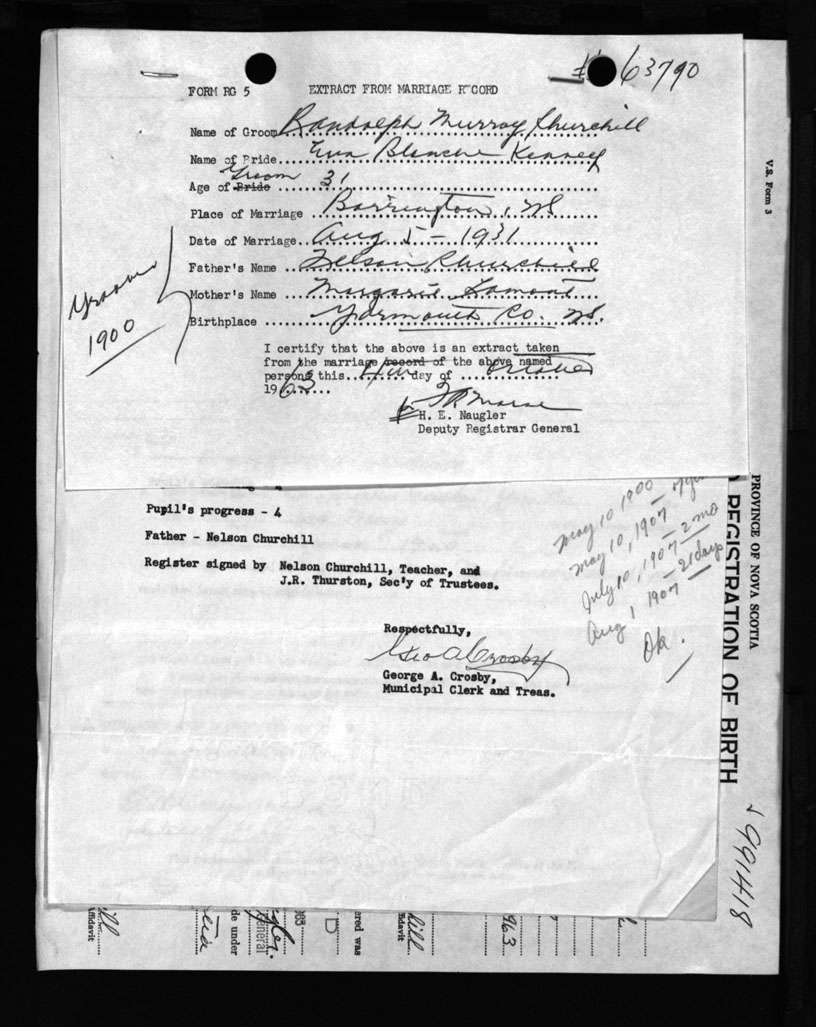 # 63790
FORM RG 5 EXTRACT FROM MARRIAGE RECORD
Name of Groom Randolph Murray Churchill
Name of Bride Eva Blanche Kenney
Groom
Age of Bride 31
Place of Marriage Barrington, N.S.
Date of Marriage Aug 5 - 1931
Father's Name Nelson Churchill
Mother's Name Lamont
Birthplace Yarmouth Co. N.S.
Groom
1900
I certify that the above is an extract taken
from the marriage record of the above named
persons this 4th day of October
1963
H. E. Naugler
Deputy Registrar General
Pupil's progress - 4
Father - Nelson Churchill
Register signed by Nelson Churchill, Teacher, and
J.R. Thurston, Sec'y of Trustees.
Respectfully,
Geo A Crosby
George A. Crosby,
Municipal Clerk and Treas.
May 10 1900
May 10, 1907
July 10, 1907 - 2 mo
Aug 1 1907 - 21 days
Ok.
V.S. Form 3
PROVINCE OF NOVA SCOTIA
REGISTRATION OF BIRTH
991418
ffidavit
de under
General
963
ered was
ffidavit
963